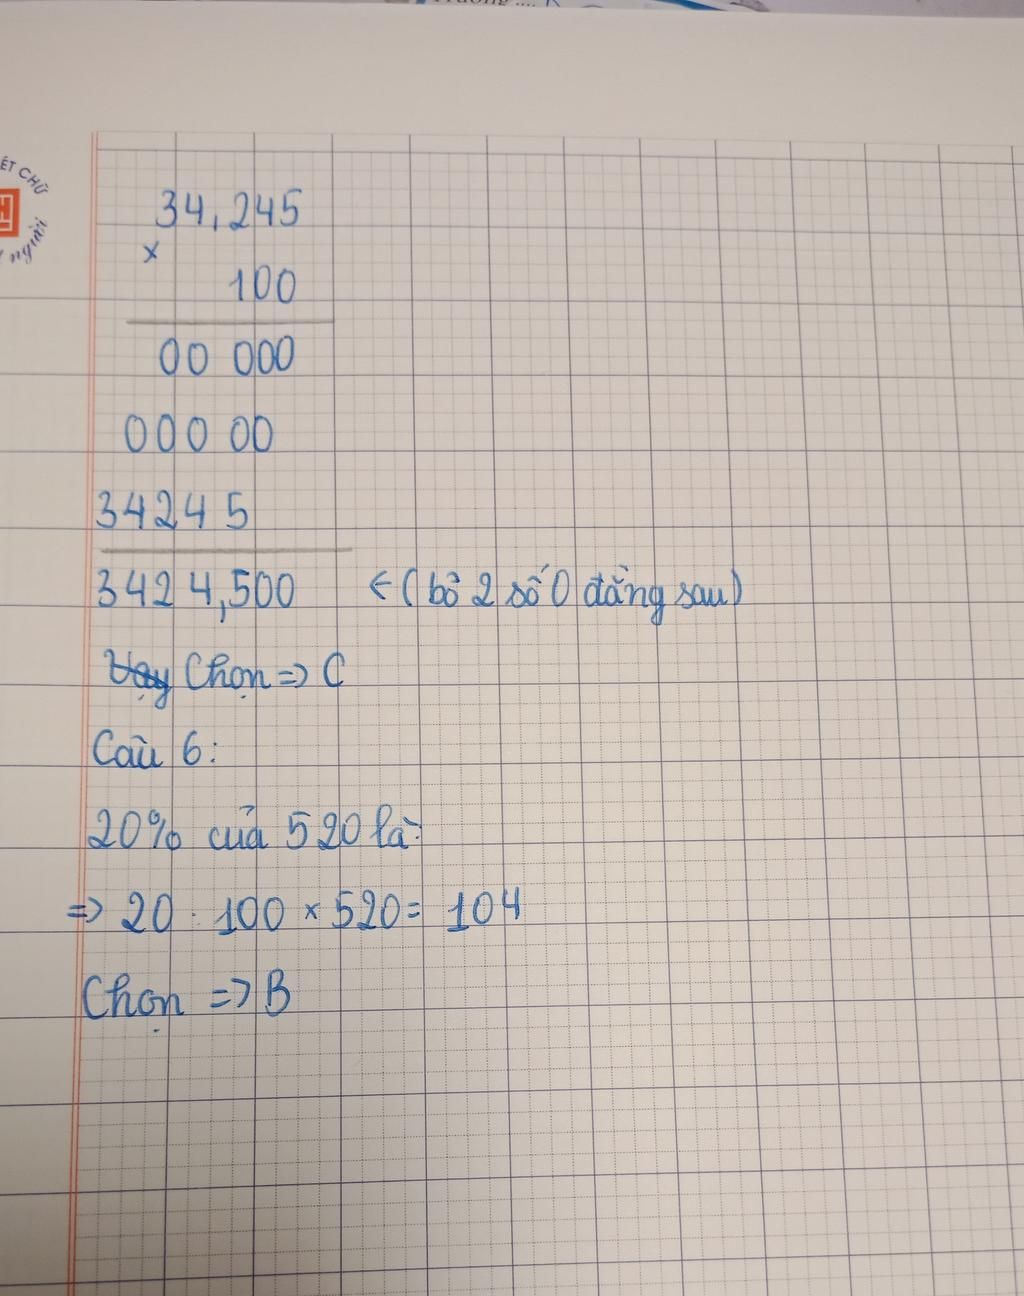 ẾT CHỮ
người
34,245
×
100
00 000
000 00
3424 5
3424,500 ← (bỏ 2 số 0 đằng sau)
Chọn => C
Câu 6:
20% của 520 là:
=> 20 : 100 × 520 = 104
Chọn => B